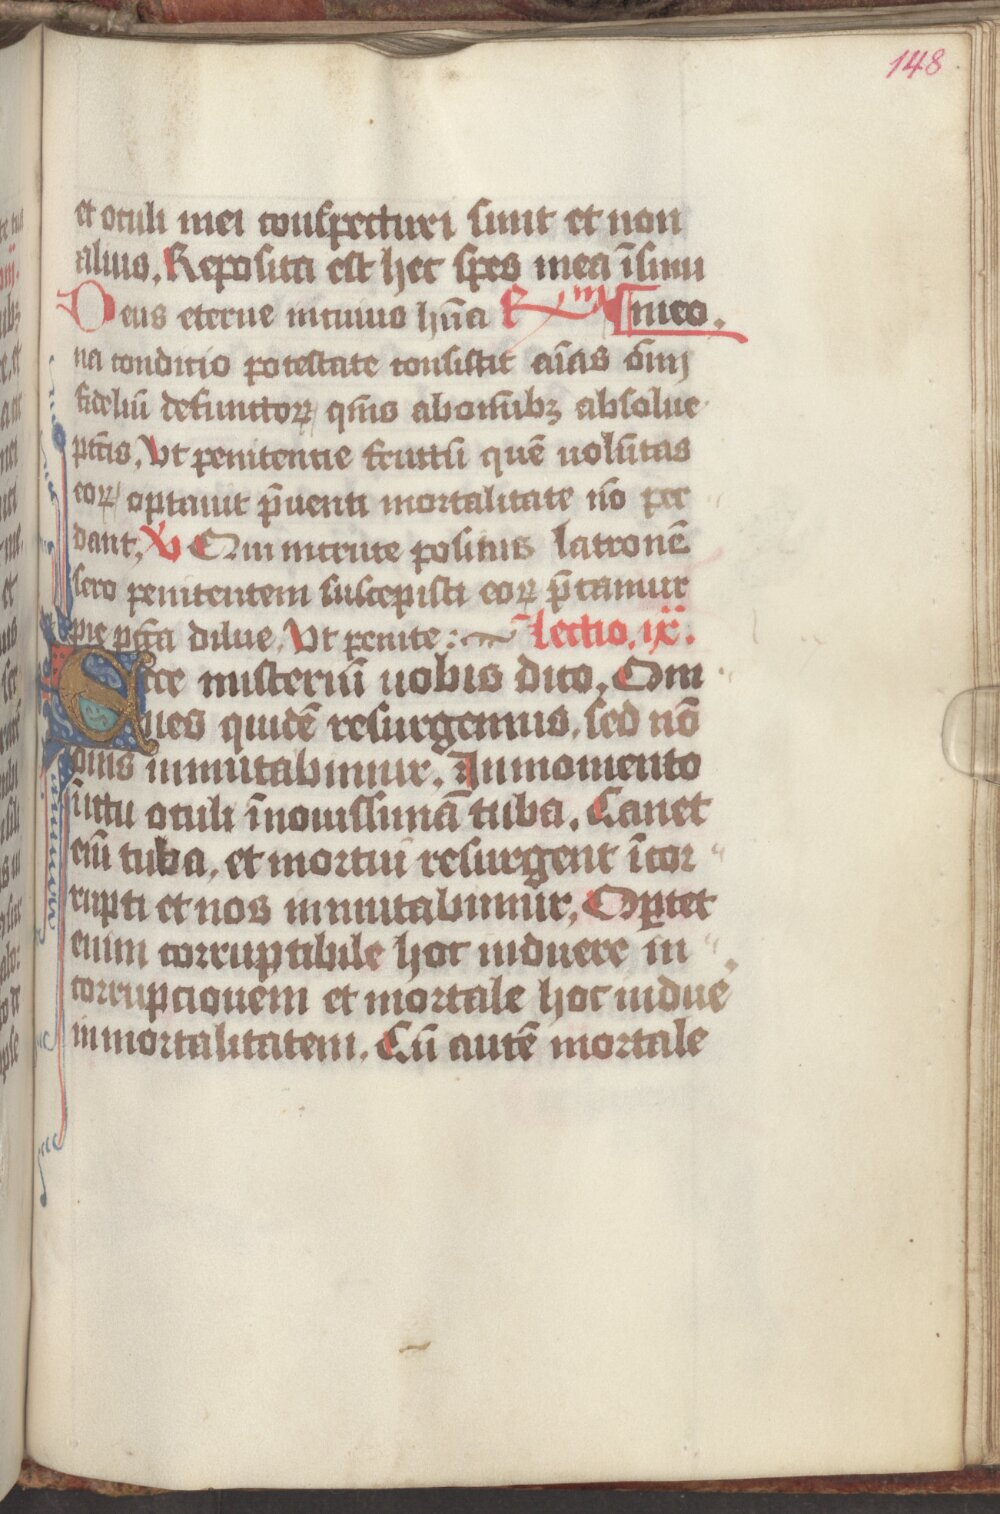 148
et oculi mei conspecturi sunt et non
alius. Reposita est hec spes mea ī sinu
Deus eterne in cuius hūa R̃ meo.
na condicio potestate consistit aīas om̄
fideliū defunctoꝝ qm̄s ab om̄ibꝫ absolue
pctīs. Vt penitencie fructū quē volūtas
eoꝝ optauit p̄uenti mortalitate nō per
dant. V̉ Qui in cruce positus latronē
sero penitentem suscepisti eoꝝ p̄camur
pie pctā dilue. Vt penite: Lectio. ix.
Ecce misteriū uobis dico. Om
nes quidē resurgemus. sed nō
om̄s inmutabimur. In momento
ī ictu oculi ī nouissima tuba. Canet
em̄ tuba. et mortui resurgent īcor
rupti et nos inmutabimur. Oꝑtet
enim corruptibile hoc induere in
corrupcionem et mortale hoc indue
inmortalitatem. Cū autē mortale